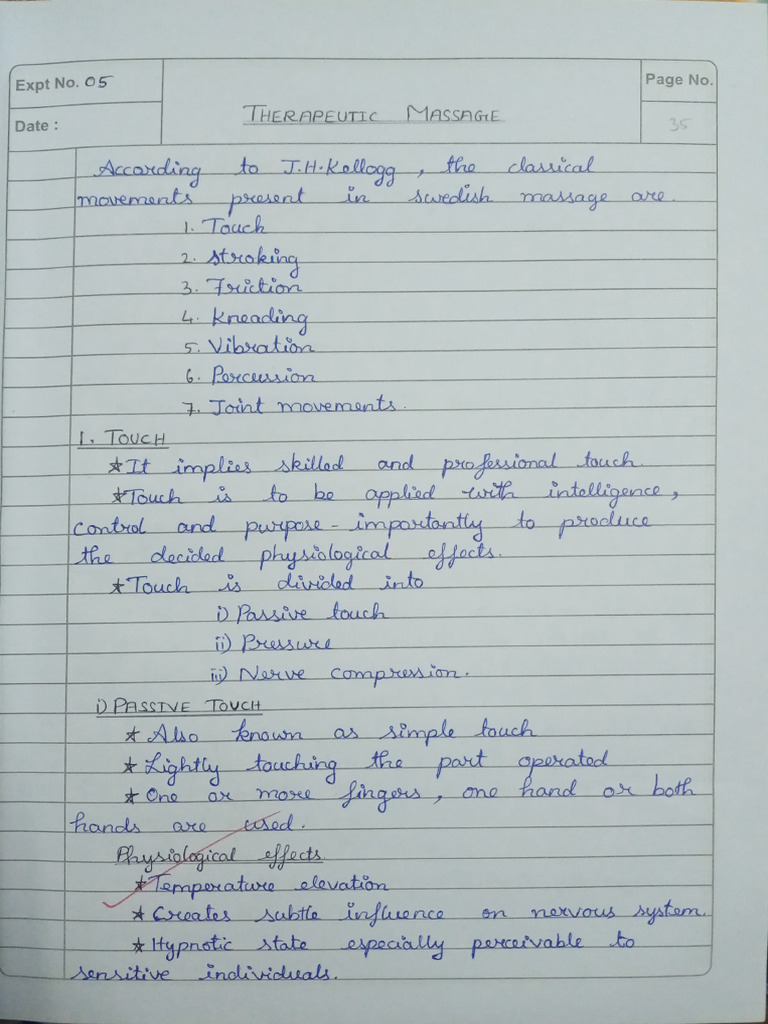 Expt No. 05
Page No.
Date :
THERAPEUTIC MASSAGE
35
According to J.H.Kellogg, the classical
movements present in swedish massage are.
1. Touch
2. Stroking
3. Friction
4. Kneading
5. Vibration
6. Percussion
7. Joint movements.
1. TOUCH
* It implies skilled and professional touch.
* Touch is to be applied with intelligence,
control and purpose - importantly to produce
the decided physiological effects.
* Touch is divided into
i) Passive touch
ii) Pressure
iii) Nerve compression.
i) PASSIVE TOUCH
* Also known as simple touch
* Lightly touching the part operated
* One or more fingers, one hand or both
hands are used.
Physiological effects.
* Temperature elevation
* Creates subtle influence on nervous system.
* Hypnotic state especially perceivable to
sensitive individuals.